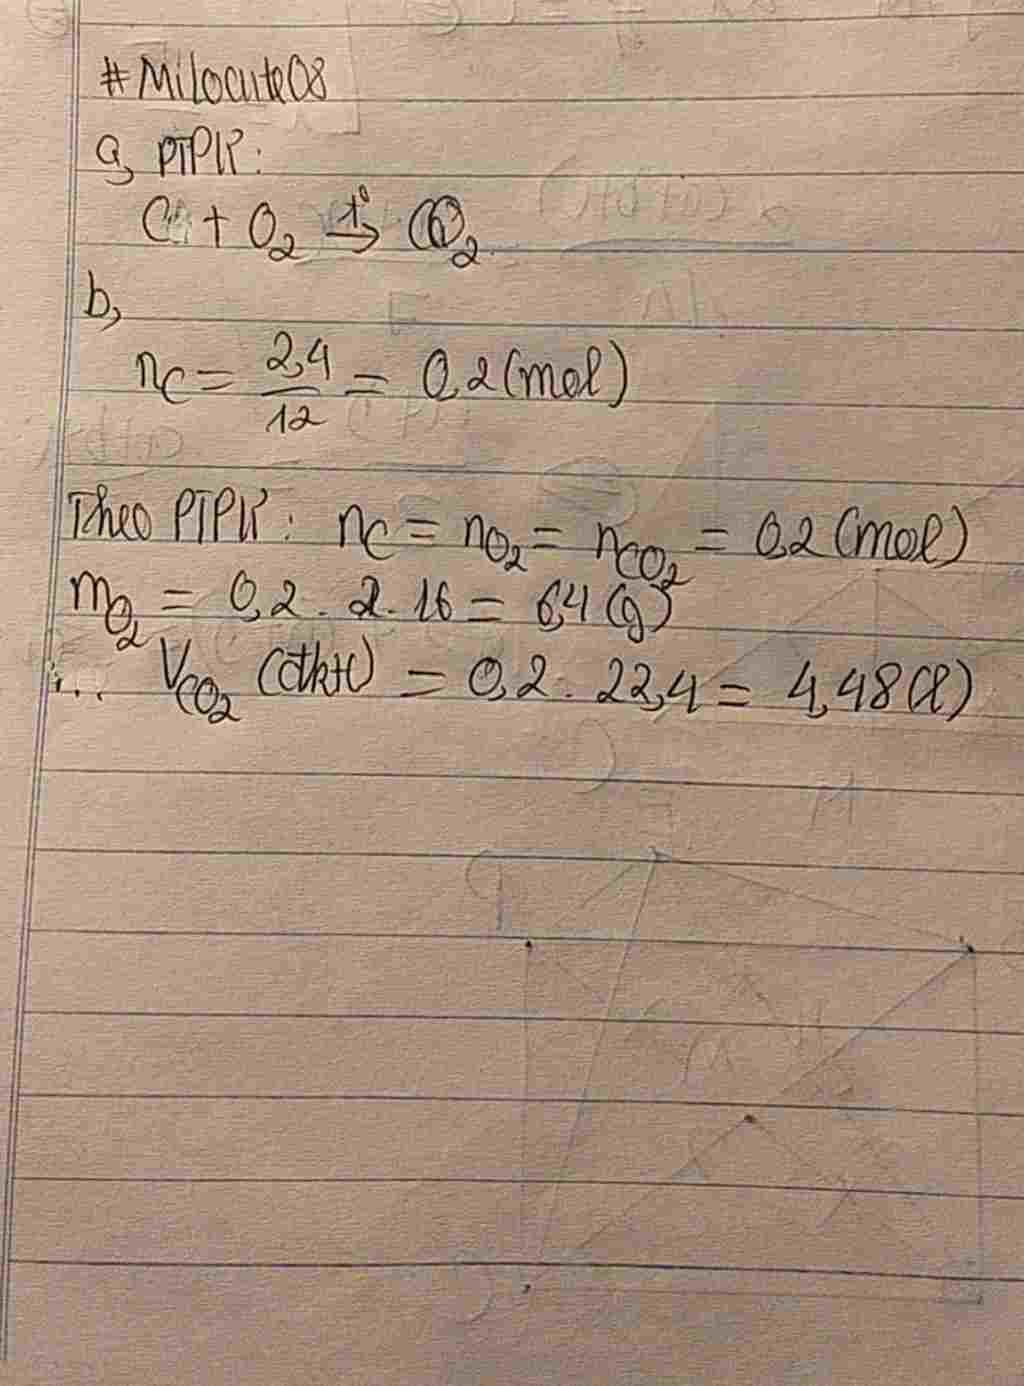 #Milocute08
a, PTPỨ:
C + O₂ t°→ CO₂
b,
nC = 2,4/12 = 0,2 (mol)
Theo PTPỨ: nC = nO₂ = nCO₂ = 0,2 (mol)
mO₂ = 0,2 . 2 . 16 = 6,4 (g)
... VCO₂ (đktc) = 0,2 . 22,4 = 4,48 (l)